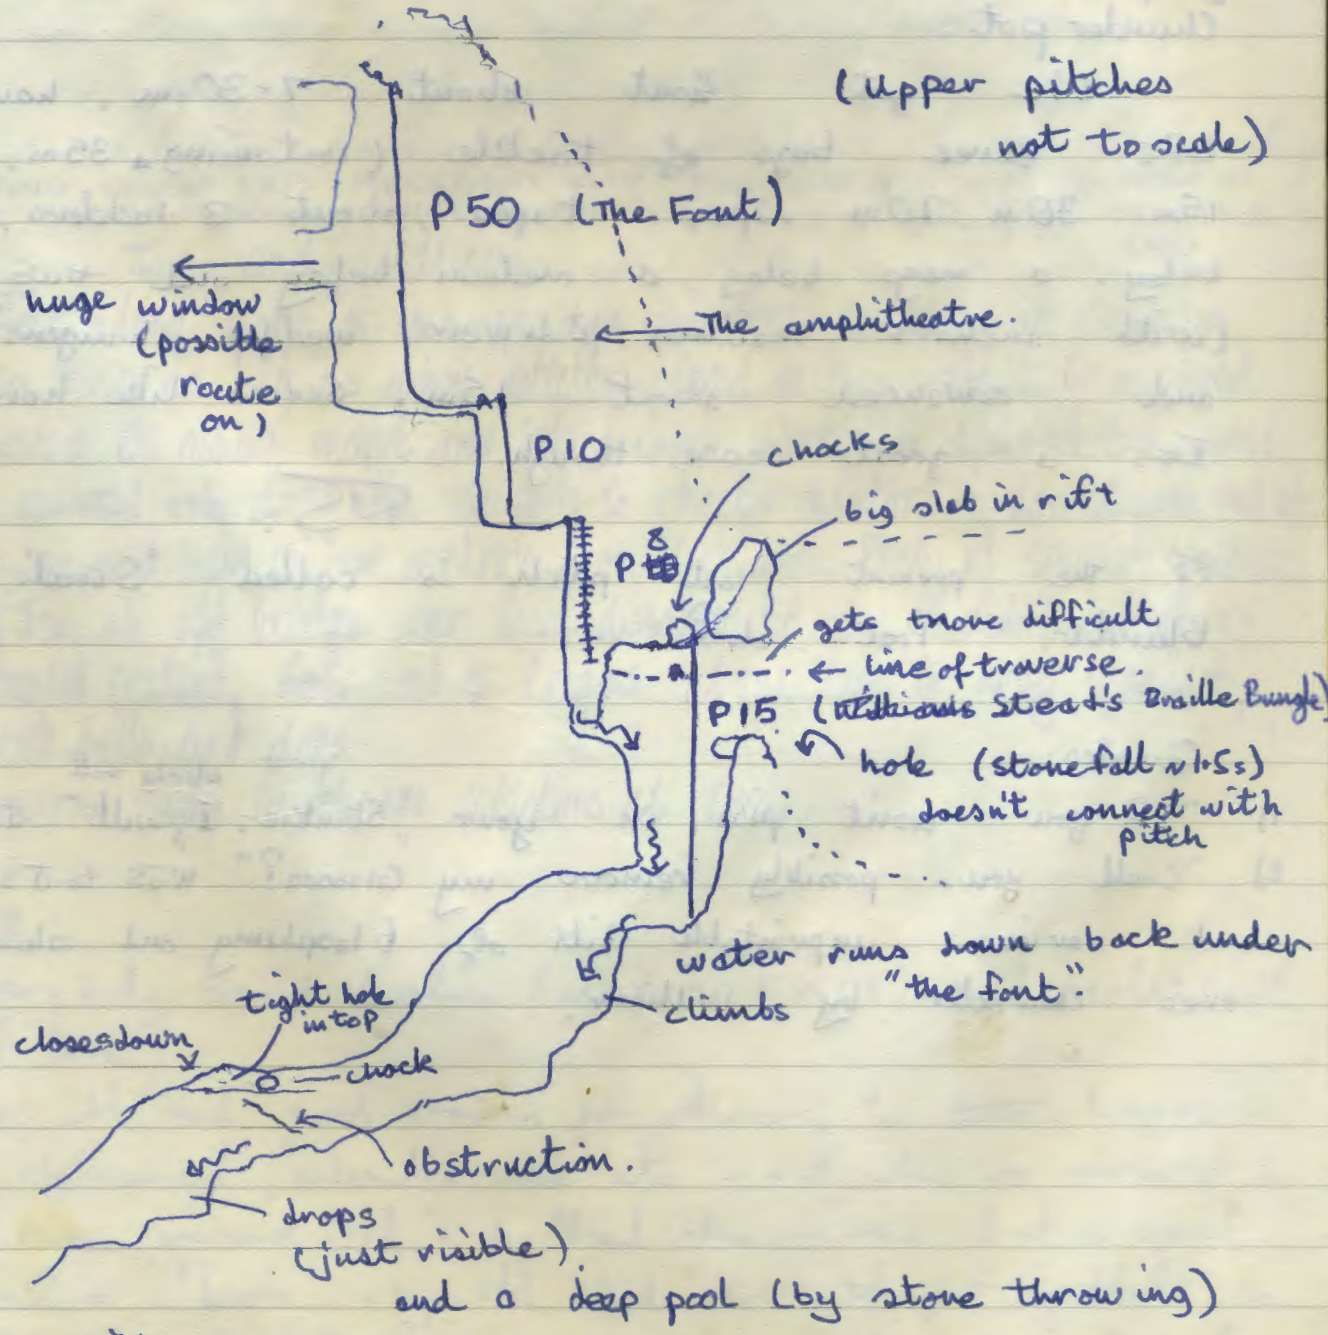 (Upper pitches
not to scale)
P 50 (The Font)
huge window
(possible
route
on)
The amphitheatre.
P 10
chocks
big slab in rift
P 8
gets more difficult
line of traverse.
P 15 (Stead's Braille Bungle)
hole (stone fall ~1.5s)
doesn't connect with
pitch
water runs down back under
"the font".
climbs
tight hole
in top
closes down
chock
obstruction.
drops
(just visible)
and a deep pool (by stone throwing)